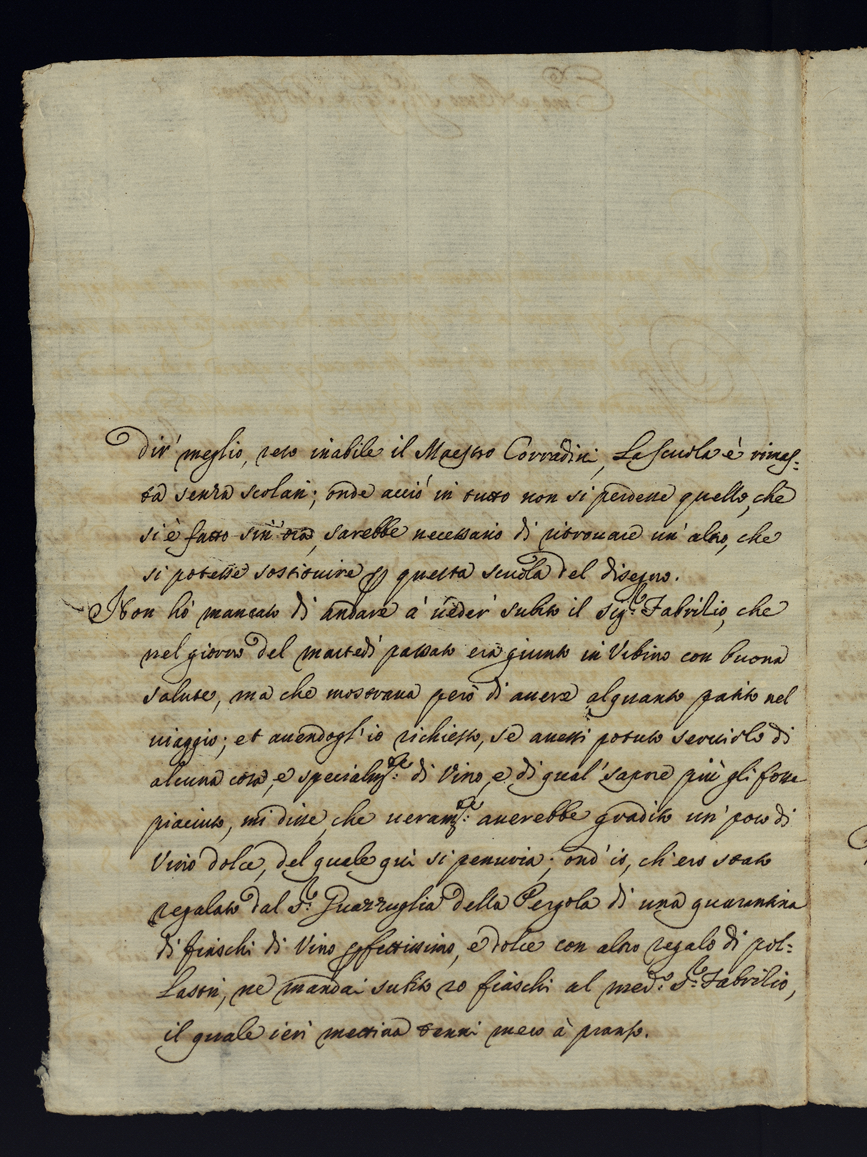 dir' meglio, reso inabile il Maestro Corradini, La scuola è rimas=
ta senza scolari; onde acciò in tutto non si perdesse quello, che
si è fatto sin' ora, sarebbe necessario di ritrovare un' altro, che
si potesse sostituire p questa scuola del disegno.
Non hò mancato di andare à ueder' subito il Sig.re Fabrilio, che
nel giorno del martedì passato era giunto in Vrbino con buona
salute, ma che mostraua però di auere alquanto patito nel
uiaggio; et auendogl' io richiesto, se auessi potuto seruirlo di
alcuna cosa, e specialm.te di Vino, e di qual' sapore più gli fosse
piaciuto, mi disse, che ueram.te auerebbe gradito un' poco di
Vino dolce, del quale quì si penuria; ond' io, ch' ero stato
regalato dal S.r Guazzuglia della Pergola di una quarantina
di fiaschi di Vino pfettissimo, e dolce con altro regalo di pol=
lastri, ne mandai subito 20 fiaschi al med.o S.r Fabrilio,
il quale ieri mattina tenni meco à pranso.